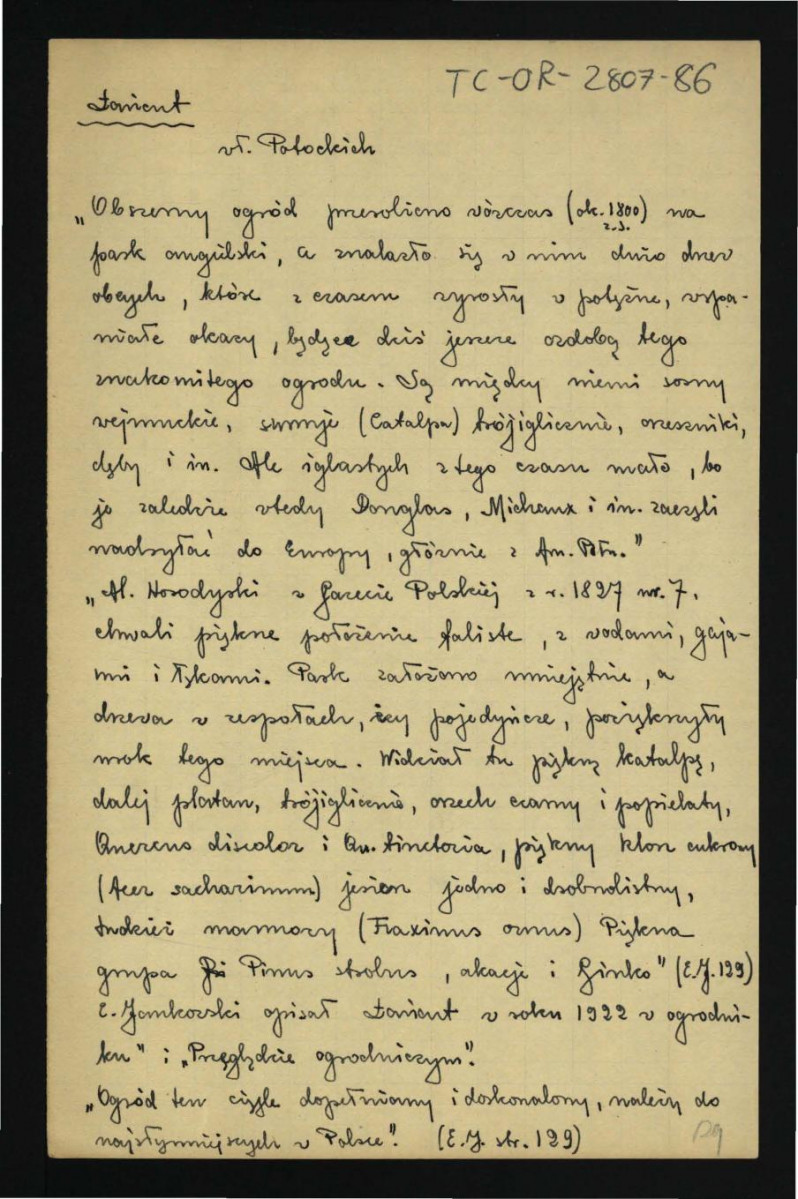 TC-OR-2807-86
Łańcut
wł. Potockich
„Obszerny ogród przerobiono wówczas (ok. 1800) na
r.s.
park angielski, a znalazło się w nim dużo drzew
obcych, które z czasem wyrosły w potężne, wspa-
niałe okazy, będące dziś jeszcze ozdobą tego
znakomitego ogrodu. Są między niemi sosny
wejmuckie, surmje (Catalpa) trójiglicznie, orzeszniki,
dęby i in. Ale iglastych z tego czasu mało, bo
je zaledwie wtedy Douglas, Michaux i in. zaczęli
nadsyłać do Europy, głównie z Am. Płn."
„Al. Horodyski w Gazecie Polskiej z r. 1827 nr. 7.
chwali piękne położenie faliste, z wodami, gaja-
mi i łąkami. Park założono umiejętnie, a
drzewa w zespołach, czy pojedyńcze, powiększyły
urok tego miejsca. Widział tu piękną katalpę,
dalej platan, trójiglicznie, orzech czarny i popielaty,
Quercus discolor i Qu. tinctoria, piękny klon cukrowy
(Acer sacharinum) jesion jedno i drobnolistny,
tudzież mannowy (Fraxinus ornus) Piękna
grupa Pinus strobus, akacje i Ginko" (E.J. 129)
E. Jankowski opisał Łańcut w roku 1922 w ogrodni-
ku" i „Przęglądzie ogrodniczym".
„Ogród ten ciągle dopełniany i doskonalony, należy do
najsłynniejszych w Polsce". (E.J. str. 129)